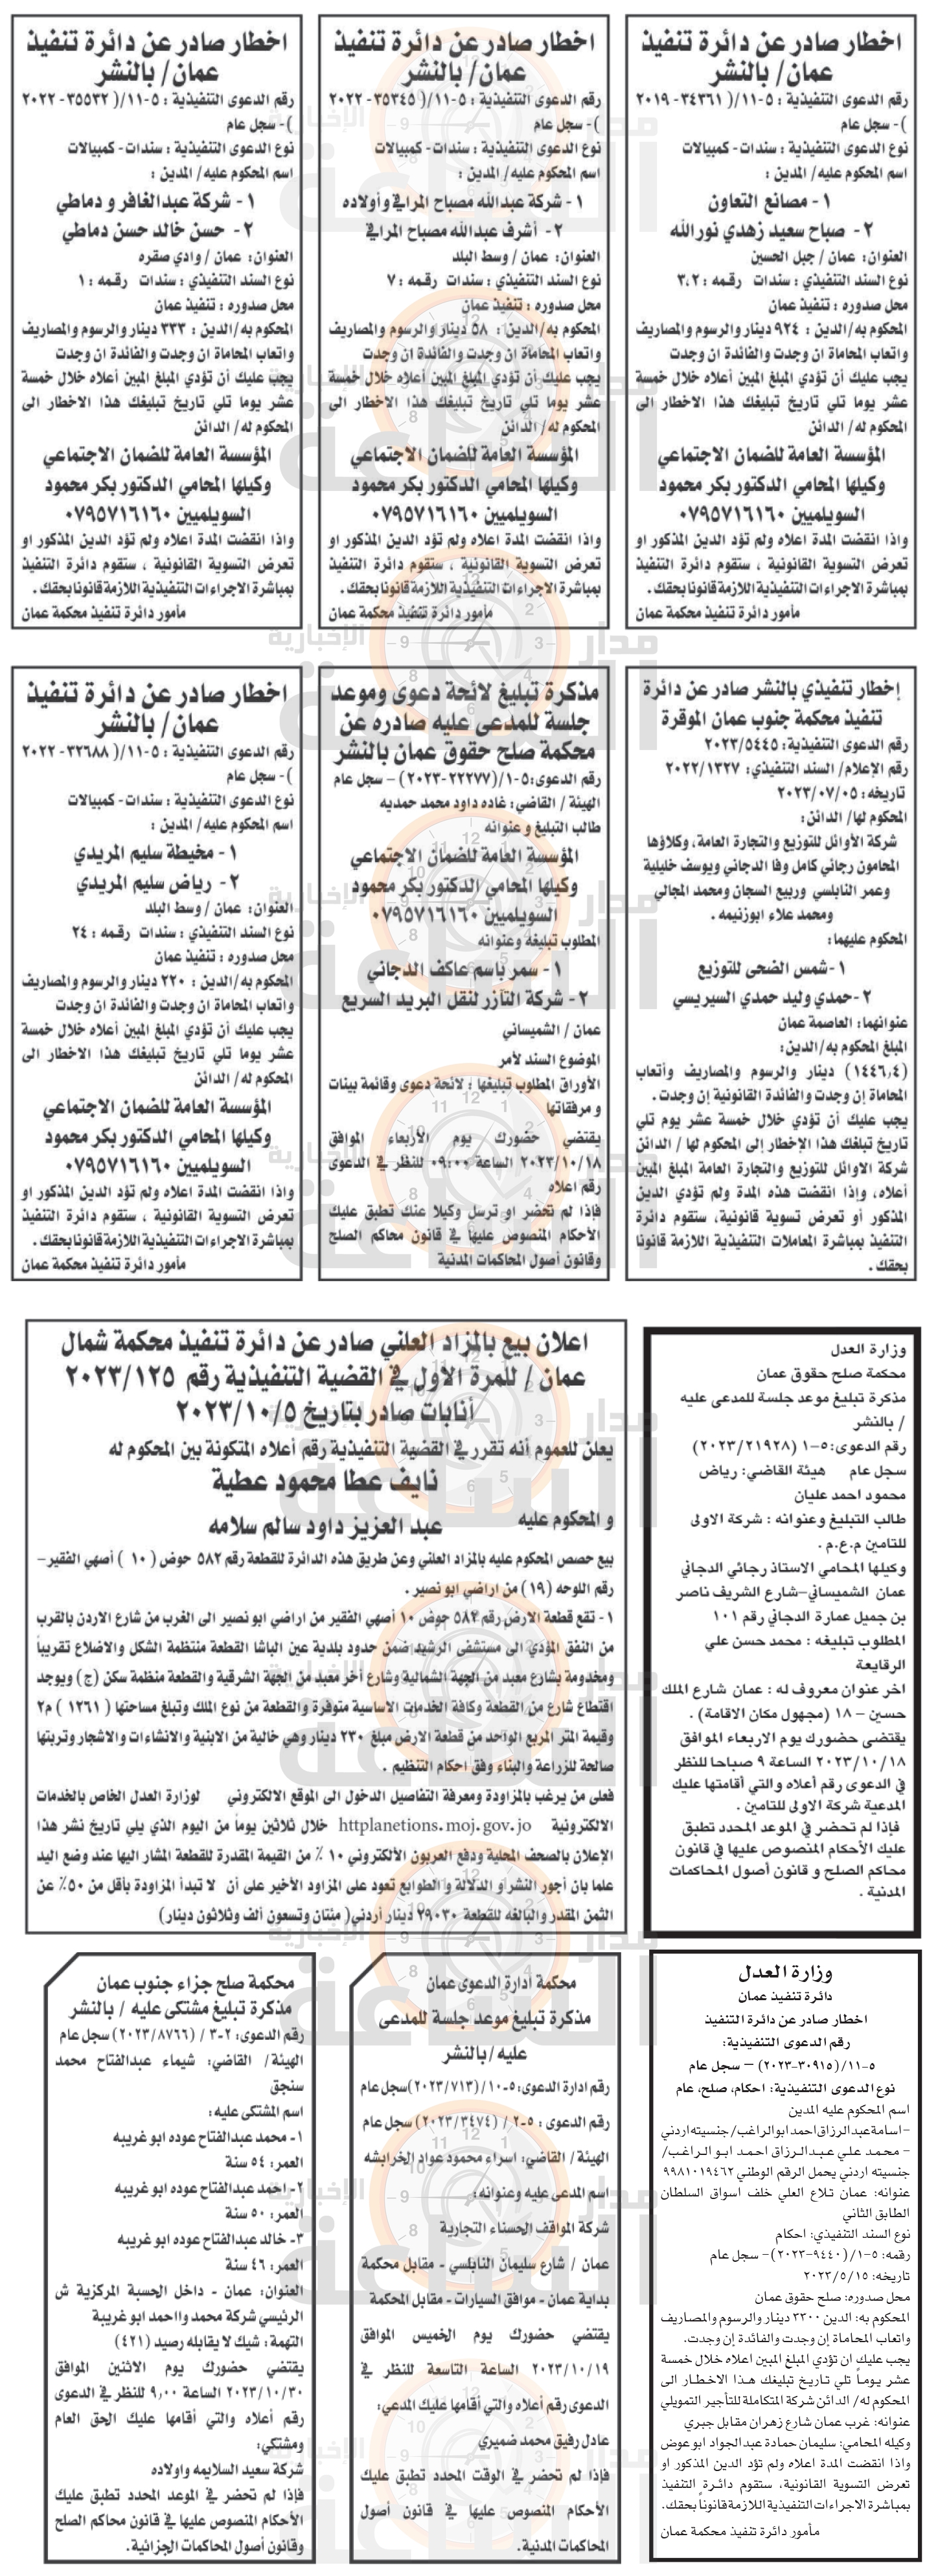 اخطار صادر عن دائرة تنفيذ
عمان/ بالنشر
رقم الدعوى التنفيذية : ٥-١١/( ٣٤٣٦١- ٢٠١٩
)- سجل عام
نوع الدعوى التنفيذية : سندات- كمبيالات
اسم المحكوم عليه/ المدين :
١ - مصانع التعاون
٢ - صباح سعيد زهدي نورالله
العنوان: عمان / جبل الحسين
نوع السند التنفيذي : سندات رقمه : ٣،٢
محل صدوره : تنفيذ عمان
المحكوم به/الدين : ٩٢٤ دينار والرسوم والمصاريف
واتعاب المحاماة ان وجدت والفائدة ان وجدت
يجب عليك أن تؤدي المبلغ المبين أعلاه خلال خمسة
عشر يوما تلي تاريخ تبليغك هذا الاخطار الى
المحكوم له/ الدائن
المؤسسة العامة للضمان الاجتماعي
وكيلها المحامي الدكتور بكر محمود
السويلميين ٠٧٩٥٧١٦١٦٠
واذا انقضت المدة اعلاه ولم تؤد الدين المذكور او
تعرض التسوية القانونية ، ستقوم دائرة التنفيذ
بمباشرة الاجراءات التنفيذية اللازمة قانونا بحقك .
مأمور دائرة تنفيذ محكمة عمان
اخطار صادر عن دائرة تنفيذ
عمان/ بالنشر
رقم الدعوى التنفيذية : ٥-١١/( ٣٥٣٤٥- ٢٠٢٢
)- سجل عام
نوع الدعوى التنفيذية : سندات- كمبيالات
اسم المحكوم عليه/ المدين :
١ - شركة عبدالله مصباح المرافي وأولاده
٢ - أشرف عبدالله مصباح المرافي
العنوان: عمان / وسط البلد
نوع السند التنفيذي : سندات رقمه : ٧
محل صدوره : تنفيذ عمان
المحكوم به/الدين : ٥٨ دينار والرسوم والمصاريف
واتعاب المحاماة ان وجدت والفائدة ان وجدت
يجب عليك أن تؤدي المبلغ المبين أعلاه خلال خمسة
عشر يوما تلي تاريخ تبليغك هذا الاخطار الى
المحكوم له/ الدائن
المؤسسة العامة للضمان الاجتماعي
وكيلها المحامي الدكتور بكر محمود
السويلميين ٠٧٩٥٧١٦١٦٠
واذا انقضت المدة اعلاه ولم تؤد الدين المذكور او
تعرض التسوية القانونية ، ستقوم دائرة التنفيذ
بمباشرة الاجراءات التنفيذية اللازمة قانونا بحقك .
مأمور دائرة تنفيذ محكمة عمان
اخطار صادر عن دائرة تنفيذ
عمان/ بالنشر
رقم الدعوى التنفيذية : ٥-١١/( ٣٥٥٣٢- ٢٠٢٢
)- سجل عام
نوع الدعوى التنفيذية : سندات- كمبيالات
اسم المحكوم عليه/ المدين :
١ - شركة عبدالغافر و دماطي
٢ - حسن خالد حسن دماطي
العنوان: عمان / وادي صقره
نوع السند التنفيذي : سندات رقمه : ١
محل صدوره : تنفيذ عمان
المحكوم به/الدين : ٣٣٣ دينار والرسوم والمصاريف
واتعاب المحاماة ان وجدت والفائدة ان وجدت
يجب عليك أن تؤدي المبلغ المبين أعلاه خلال خمسة
عشر يوما تلي تاريخ تبليغك هذا الاخطار الى
المحكوم له/ الدائن
المؤسسة العامة للضمان الاجتماعي
وكيلها المحامي الدكتور بكر محمود
السويلميين ٠٧٩٥٧١٦١٦٠
واذا انقضت المدة اعلاه ولم تؤد الدين المذكور او
تعرض التسوية القانونية ، ستقوم دائرة التنفيذ
بمباشرة الاجراءات التنفيذية اللازمة قانونا بحقك .
مأمور دائرة تنفيذ محكمة عمان
إخطار تنفيذي بالنشر صادر عن دائرة
تنفيذ محكمة جنوب عمان الموقرة
رقم الدعوى التنفيذية: ٢٠٢٣/٥٤٤٥
رقم الإعلام/ السند التنفيذي: ٢٠٢٢/١٣٢٧
تاريخه: ٢٠٢٣/٠٧/٠٥
المحكوم لها/ الدائن:
شركة الأوائل للتوزيع والتجارة العامة، وكلاؤها
المحامون رجائي كامل وفا الدجاني ويوسف خليلية
وعمر النابلسي وربيع السجان ومحمد المجالي
ومحمد علاء ابوزنيمه .
المحكوم عليهما:
١ -شمس الضحى للتوزيع
٢ -حمدي وليد حمدي السيريسي
عنوانهما: العاصمة عمان
المبلغ المحكوم به/الدين:
(١٤٤٦,٤) دينار والرسوم والمصاريف وأتعاب
المحاماة إن وجدت والفائدة القانونية إن وجدت .
يجب عليك أن تؤدي خلال خمسة عشر يوم تلي
تاريخ تبلغك هذا الإخطار إلى المحكوم لها / الدائن
شركة الاوائل للتوزيع والتجارة العامة المبلغ المبين
أعلاه، وإذا انقضت هذه المدة ولم تؤدي الدين
المذكور أو تعرض تسوية قانونية، ستقوم دائرة
التنفيذ بمباشرة المعاملات التنفيذية اللازمة قانونا
بحقك .
مذكرة تبليغ لائحة دعوى وموعد
جلسة للمدعى عليه صادره عن
محكمة صلح حقوق عمان بالنشر
رقم الدعوى:٥-١/(٢٢٢٧٧-٢٠٢٣) – سجل عام
الهيئة / القاضي: غاده داود محمد حمديه
طالب التبليغ و عنوانه
المؤسسة العامة للضمان الاجتماعي
وكيلها المحامي الدكتور بكر محمود
السويلميين ٠٧٩٥٧١٦١٦٠
المطلوب تبليغة وعنوانه
١ - سمر باسم عاكف الدجاني
٢ - شركة التآزر لنقل البريد السريع
عمان / الشميساني
الموضوع السند لأمر
الأوراق المطلوب تبليغها : لائحة دعوى وقائمة بينات
و مرفقاتها
يقتضي حضورك يوم الأربعاء الموافق
٢٠٢٣/١٠/١٨ الساعة ٠٩:٠٠ للنظر في الدعوى
رقم اعلاه
فإذا لم تحضر او ترسل وكيلا عنك تطبق عليك
الأحكام المنصوص عليها في قانون محاكم الصلح
وقانون أصول المحاكمات المدنية
اخطار صادر عن دائرة تنفيذ
عمان/ بالنشر
رقم الدعوى التنفيذية : ٥-١١/( ٣٢٦٨٨- ٢٠٢٢
)- سجل عام
نوع الدعوى التنفيذية : سندات- كمبيالات
اسم المحكوم عليه/ المدين :
١ - مخيطة سليم المريدي
٢ - رياض سليم المريدي
العنوان: عمان / وسط البلد
نوع السند التنفيذي : سندات رقمه : ٢٤
محل صدوره : تنفيذ عمان
المحكوم به/الدين : ٢٢٠ دينار والرسوم والمصاريف
واتعاب المحاماة ان وجدت والفائدة ان وجدت
يجب عليك أن تؤدي المبلغ المبين أعلاه خلال خمسة
عشر يوما تلي تاريخ تبليغك هذا الاخطار الى
المحكوم له/ الدائن
المؤسسة العامة للضمان الاجتماعي
وكيلها المحامي الدكتور بكر محمود
السويلميين ٠٧٩٥٧١٦١٦٠
واذا انقضت المدة اعلاه ولم تؤد الدين المذكور او
تعرض التسوية القانونية ، ستقوم دائرة التنفيذ
بمباشرة الاجراءات التنفيذية اللازمة قانونا بحقك .
مأمور دائرة تنفيذ محكمة عمان
وزارة العدل
محكمة صلح حقوق عمان
مذكرة تبليغ موعد جلسة للمدعى عليه
/ بالنشر
رقم الدعوى:٥-١ (٢٠٢٣/٢١٩٢٨)
سجل عام هيئة القاضي: رياض
محمود احمد عليان
طالب التبليغ وعنوانه : شركة الاولى
للتامين م.ع.م .
وكيلها المحامي الاستاذ رجائي الدجاني
عمان الشميساني–شارع الشريف ناصر
بن جميل عمارة الدجاني رقم ١٠١
المطلوب تبليغه : محمد حسن علي
الرقايعة
اخر عنوان معروف له : عمان شارع الملك
حسين – ١٨ (مجهول مكان الاقامة) .
يقتضى حضورك يوم الاربعاء الموافق
٢٠٢٣/١٠/١٨ الساعة ٩ صباحا للنظر
في الدعوى رقم أعلاه والتي أقامتها عليك
المدعية شركة الاولى للتامين .
فإذا لم تحضر في الموعد المحدد تطبق
عليك الأحكام المنصوص عليها في قانون
محاكم الصلح و قانون أصول المحاكمات
المدنية .
اعلان بيع بالمزاد العلني صادر عن دائرة تنفيذ محكمة شمال
عمان / للمرة الاول في القضية التنفيذية رقم ٢٠٢٣/١٢٥
أنابات صادر بتاريخ ٢٠٢٣/١٠/٥
يعلن للعموم أنه تقرر في القضية التنفيذية رقم أعلاه المتكونة بين المحكوم له
نايف عطا محمود عطية
و المحكوم عليه عبد العزيز داود سالم سلامه
بيع حصص المحكوم عليه بالمزاد العلني وعن طريق هذه الدائرة للقطعة رقم ٥٨٢ حوض ( ١٠ ) أصهي الفقير–
رقم اللوحه (١٩) من اراضي ابو نصير .
١ - تقع قطعة الارض رقم ٥٨٢ حوض ١٠ أصهي الفقير من اراضي ابو نصير الى الغرب من شارع الاردن بالقرب
من النفق المؤدي الى مستشفى الرشيد ضمن حدود بلدية عين الباشا القطعة منتظمة الشكل والاضلاع تقريباً
ومخدومة بشارع معبد من الجهة الشمالية وشارع أخر معبد من الجهة الشرقية والقطعة منظمة سكن (ج) ويوجد
اقتطاع شارع من القطعة وكافة الخدمات الاساسية متوفرة والقطعة من نوع الملك وتبلغ مساحتها ( ١٢٦١ ) م٢
وقيمة المتر المربع الواحد من قطعة الارض مبلغ ٢٣٠ دينار وهي خالية من الابنية والانشاءات والاشجار وتربتها
صالحة للزراعة والبناء وفق احكام التنظيم .
فعلى من يرغب بالمزاودة ومعرفة التفاصيل الدخول الى الموقع الالكتروني لوزارة العدل الخاص بالخدمات
الالكترونية httplanetions.moj.gov.jo خلال ثلاثين يوماً من اليوم الذي يلي تاريخ نشر هذا
الإعلان بالصحف المحلية ودفع العربون الألكتروني ١٠ ٪ من القيمة المقدرة للقطعة المشار اليها عند وضع اليد
علما بان أجور النشر او الدلالة و الطوابع تعود على المزاود الأخير على أن لا تبدأ المزاودة بأقل من ٥٠٪ عن
الثمن المقدر والبالغه للقطعة ٢٩٠٣٠ دينار أردني( مئتان وتسعون ألف وثلاثون دينار)
وزارة العدل
دائرة تنفيذ عمان
اخطار صادر عن دائرة التنفيذ
رقم الدعوى التنفيذية:
٥-١١/(٣٠٩١٥-٢٠٢٣) – سجل عام
نوع الدعوى التنفيذية: احكام، صلح، عام
اسم المحكوم عليه المدين
-اسامةعبدالرزاق احمد ابوالراغب/ جنسيته اردني
- محمد علي عبدالرزاق احمد ابو الراغب/
جنسيته اردني يحمل الرقم الوطني ٩٩٨١٠١٩٤٦٢
عنوانه: عمان تلاع العلي خلف اسواق السلطان
الطابق الثاني
نوع السند التنفيذي: احكام
رقمه: ٥-١/(٩٤٤٠-٢٠٢٣)- سجل عام
تاريخه: ٢٠٢٣/٥/١٥
محل صدوره: صلح حقوق عمان
المحكوم به: الدين ٣٣٠٠ دينار والرسوم والمصاريف
واتعاب المحاماة إن وجدت والفائدة إن وجدت.
يجب عليك ان تؤدي المبلغ المبين اعلاه خلال خمسة
عشر يوماً تلي تاريخ تبليغك هذا الاخطار الى
المحكوم له/ الدائن شركة المتكاملة للتأجير التمويلي
عنوانه: غرب عمان شارع زهران مقابل جبري
وكيله المحامي: سليمان حمادة عبدالجواد ابو عوض
واذا انقضت المدة اعلاه ولم تؤد الدين المذكور او
تعرض التسوية القانونية، ستقوم دائرة التنفيذ
بمباشرة الاجراءات التنفيذية اللازمة قانوناً بحقك.
مأمور دائرة تنفيذ محكمة عمان
محكمة ادارة الدعوى عمان
مذكرة تبليغ موعد جلسة للمدعى
عليه /بالنشر
رقم ادارة الدعوى:٥-١٠/(٢٠٢٣/٧١٣)سجل عام
رقم الدعوى : ٥-٢ / (٢٠٢٣/٣٤٧٤) سجل عام
الهيئة / القاضي: اسراء محمود عواد الخرابشه
اسم المدعى عليه وعنوانه:
شركة المواقف الحسناء التجارية
عمان / شارع سليمان النابلسي - مقابل محكمة
بداية عمان - موافق السيارات - مقابل المحكمة
يقتضي حضورك يوم الخميس الموافق
٢٠٢٣/١٠/١٩ الساعة التاسعة للنظر في
الدعوى رقم أعلاه والتي أقامها عليك المدعي:
عادل رفيق محمد ضميري
فإذا لم تحضر في الوقت المحدد تطبق عليك
الأحكام المنصوص عليها في قانون أصول
المحاكمات المدنية.
محكمة صلح جزاء جنوب عمان
مذكرة تبليغ مشتكى عليه / بالنشر
رقم الدعوى: ٢-٣ / (٢٠٢٣/٨٧٦٦) سجل عام
الهيئة/ القاضي: شيماء عبدالفتاح محمد
سنجق
اسم المشتكى عليه:
١- محمد عبدالفتاح عوده ابو غريبه
العمر: ٥٤ سنة
٢- احمد عبدالفتاح عوده ابو غريبة
العمر: ٥٠ سنة
٣- خالد عبدالفتاح عوده ابو غريبه
العمر: ٤٦ سنة
العنوان: عمان - داخل الحسبة المركزية ش
الرئيسي شركة محمد وااحمد ابو غريبة
التهمة: شيك لا يقابله رصيد (٤٢١)
يقتضي حضورك يوم الاثنين الموافق
٢٠٢٣/١٠/٣٠ الساعة ٩,٠٠ للنظر في الدعوى
رقم أعلاه والتي أقامها عليك الحق العام
ومشتكي:
شركة سعيد السلايمه واولاده
فإذا لم تحضر في الموعد المحدد تطبق عليك
الأحكام المنصوص عليها في قانون محاكم الصلح
وقانون أصول المحاكمات الجزائية.